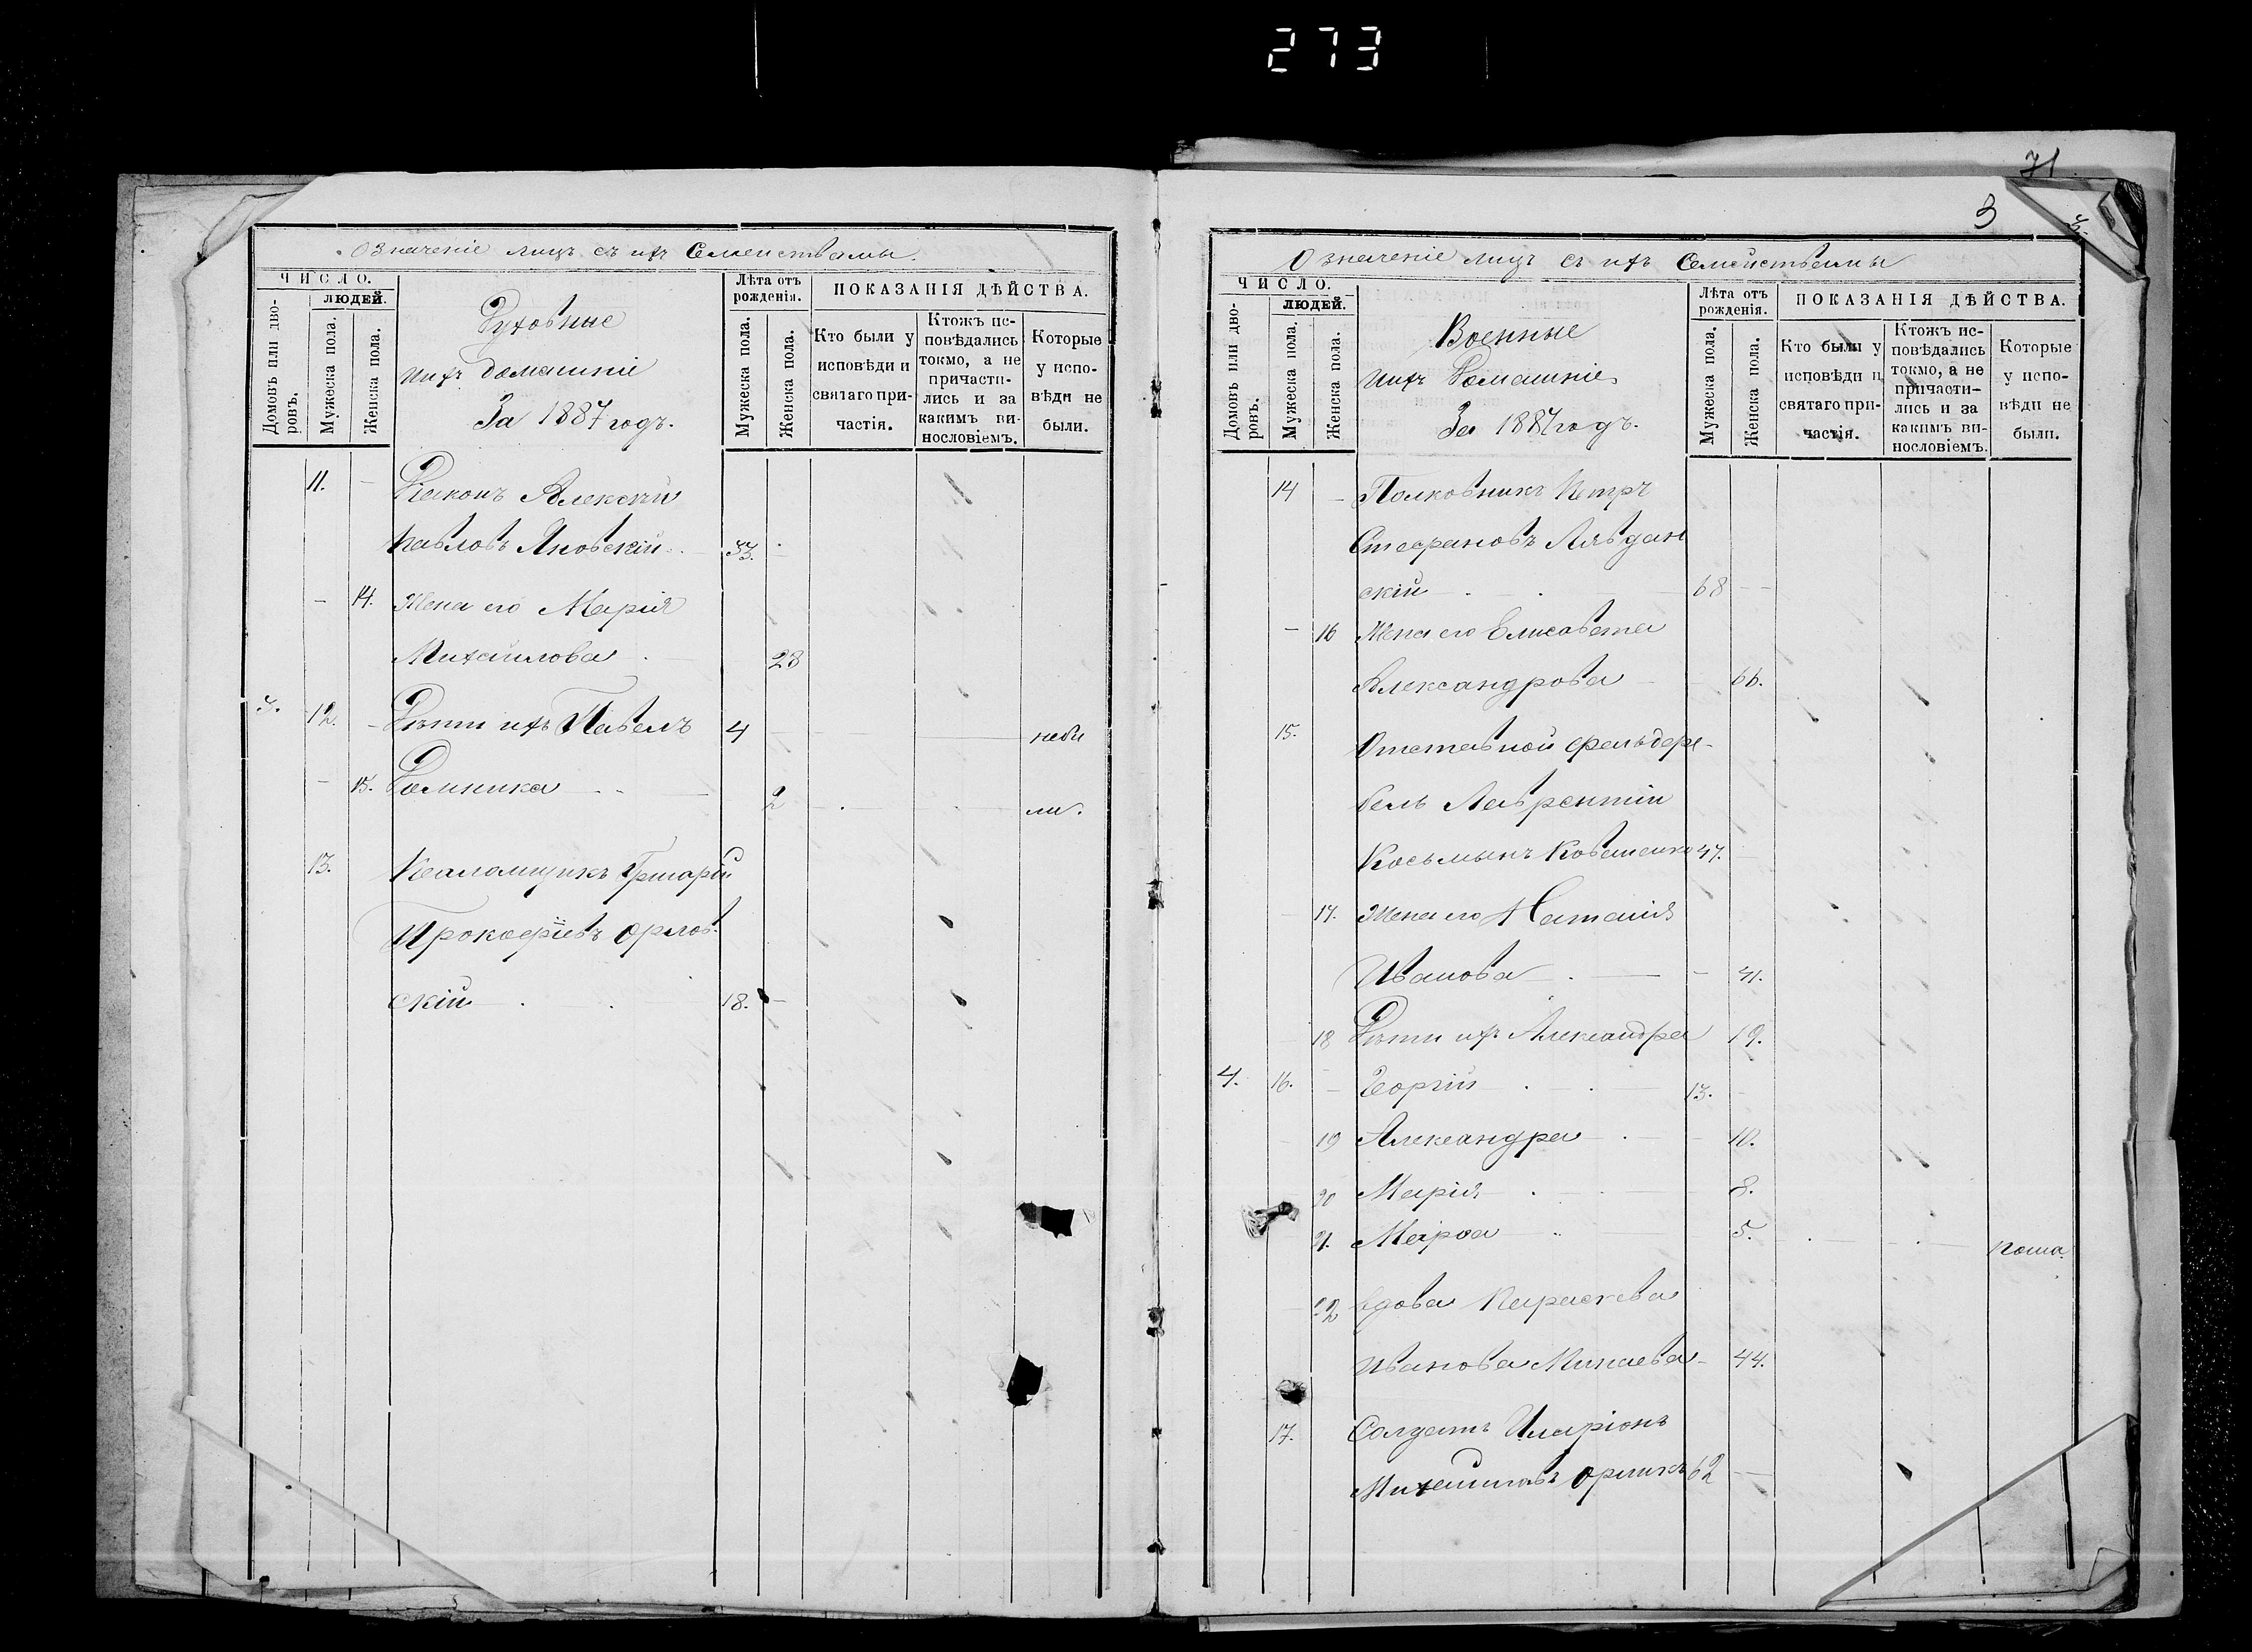 273
71
3
Означеніе лицъ съ ихъ Семействами.
ЧИСЛО.
людей.
Домовъ или дворовъ.
Мужеска пола.
Женска пола.
Духовные
ихъ домашніе
За 1887 годъ.
Лѣта отъ рожденія.
Мужеска пола.
Женска пола.
ПОКАЗАНІЯ ДѢЙСТВА.
Кто были у исповѣди и святаго причастія.
Ктожъ исповѣдались токмо, а не причастились и за какимъ винословіемъ.
Которые у исповѣди не были.
11. Діаконъ Алексѣй
Павловъ Яновскій 33.
14. Жена его Марія
Михайлова 28
3. 12. Дѣти ихъ Павелъ 4 небы
15. Домника 2 ли.
13. Псаломщикъ Григорій
Прокофіевъ Орлов-
скій 18.
Означеніе лицъ съ ихъ Семействами
ЧИСЛО.
людей.
Домовъ или дворовъ.
Мужеска пола.
Женска пола.
Военные
ихъ Домашніе
За 1887 годъ.
Лѣта отъ рожденія.
Мужеска пола.
Женска пола.
ПОКАЗАНІЯ ДѢЙСТВА.
Кто были у исповѣди и святаго причастія.
Ктожъ исповѣдались токмо, а не причастились и за какимъ винословіемъ.
Которые у исповѣди не были.
14 Полковникъ Петръ
Стефановъ
скій 68
16 Жена его Елисавета
Александрова 66.
15. Отставной фельдфе-
бель Лаврентій
Косьминъ 47.
17. Жена его Наталія
Иванова 41.
18 Дѣти ихъ Александра 19.
4. 16. Георгій 13.
19 Александра 10.
20 Марія 8.
21. Марфа 5.
22 Вдова Параскева
Иванова Минаева 44.
17. Солдатъ Иларіонъ
Михайловъ Орликъ 62